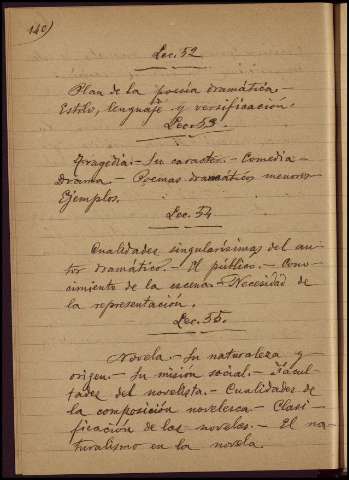 140)
Lec. 52
Plan de la poesía dramática.—
Estilo, lenguaje y versificación.
Lec. 53.
Tragedia.— Su caracter.— Comedia.—
Drama.— Poemas dramáticos menores.—
Ejemplos.
Lec. 54
Cualidades singularísimas del au-
tor dramático.— El público.— Cono-
cimiento de la escena.— Necesidad de
la representación.
Lec. 55.
Novela.— Su naturaleza y
origen.— Su misión social.— Facul-
tades del novelista.— Cualidades de
la composición novelesca.— Clasi-
ficación de las novelas.— El na-
turalismo en la novela.